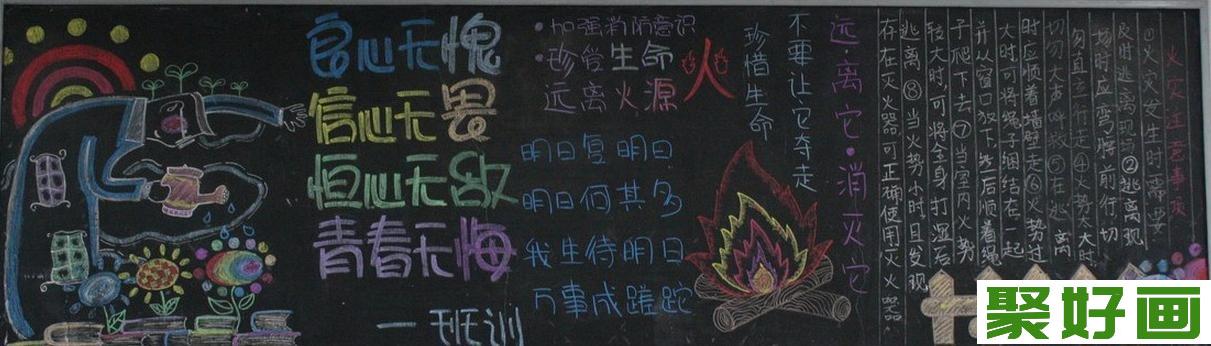 良心无愧
信心无畏
恒心无敌
青春无悔
一班训
·加强消防意识
·珍爱生命
远离火源
火
明日复明日
明日何其多
我生待明日
万事成蹉跎
珍惜生命
不要让它夺走
远·离它·消灭它
火灾注意事项
①火灾发生时需要
及时逃离现场②逃离现
场时应弯腰前行切
勿直立行走④火势大时
切勿大声呼救⑤在逃离
时应顺着墙壁走⑥火势过
大时可将绳子捆结在一起
并从窗口放下然后顺着绳
子爬下去⑦当室内火势
较大时可将全身打湿后
逃离⑧当火势小时且发现
存在灭火器可正确使用灭火器
聚好画